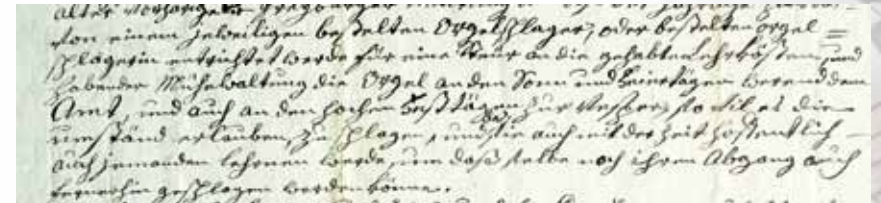 von einem jeweiligen bestelten Orgelschlager, oder bestelten orgel =
schlagerin entrichtet werde für eine Steur an die gehabten Lehrkösten, und
habender Mühewaltung die Orgel an den Sonn und Feiertägen werend dem
Amt, und auch an den hochen Festtägen zur Vesper, so vil es die
umständ erlauben, zu schlagen, und sie auch mit der Zeit hoffentlich
auch jemanden lehrnen werde, um daß selbe noch ihrem Abgang auch
fernerhin geschlagen werden könne.